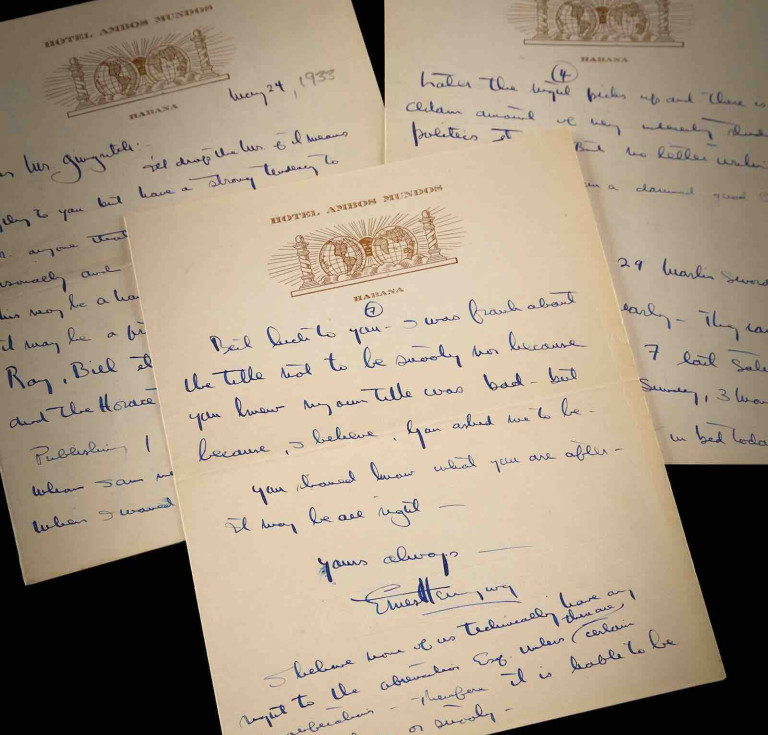 HOTEL AMBOS MUNDOS
HABANA
May 24, 1933
Mr. Gingrich:
I'll drop the Mr. if it means
to you but have a strong tendency to
anyone that
and
may be a
it may be a
Ray, Bill
and the Horace
Publishing
whom I am
when I wanted
HABANA
(4
Later the night picks up and there is
certain amount of very
politics
But no better
in a damned good
29 Marlin
early - They
7 Sail
Sunday, 3
in bed today
HOTEL AMBOS MUNDOS
HABANA
7
But back to you - I was frank about
the title not to be snooty nor because
you knew my own title was bad - but
because, I believe, you asked me to be -
you should know what you are after -
it may be all right -
yours always -
Ernest Hemingway
I believe none of us technically have any
right to the abreviation Esq. unless there are certain
- Therefore it is liable to be
or snooty -